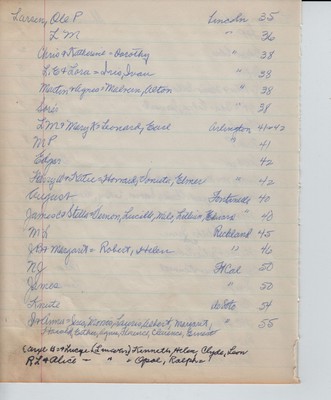 Larsen, Ole P. Lincoln 35
L M " 36
Chris & Katherine = Dorothy " 38
L. C & Lora = Iris, Ivan " 38
Martin & Agnes = Malveen, Alton " 38
" 38
L M & Mary K = Leonard, Earl Arlington 41+42
M P " 41
Edgar 42
Harry W & Katie = Howard, Juanita, Elmer " 42
August Fontanelle 40
James C & Stella = Vernon, Lucille, Nels, Lillian, Edward " 40
M S Richland 45
J R & Margaret = Robert, Helen " 46
N J Ft Cal 50
James " 50
Knute de Soto 54
Jr & Anna = Iris, Elmer, Delbert, Margaret, " 55
Harold, Esther, Florence, Clarence,
Carl W & Luega Kenneth, Helen, Clyde, Leon
R L & Alice - " " Opal, Ralph